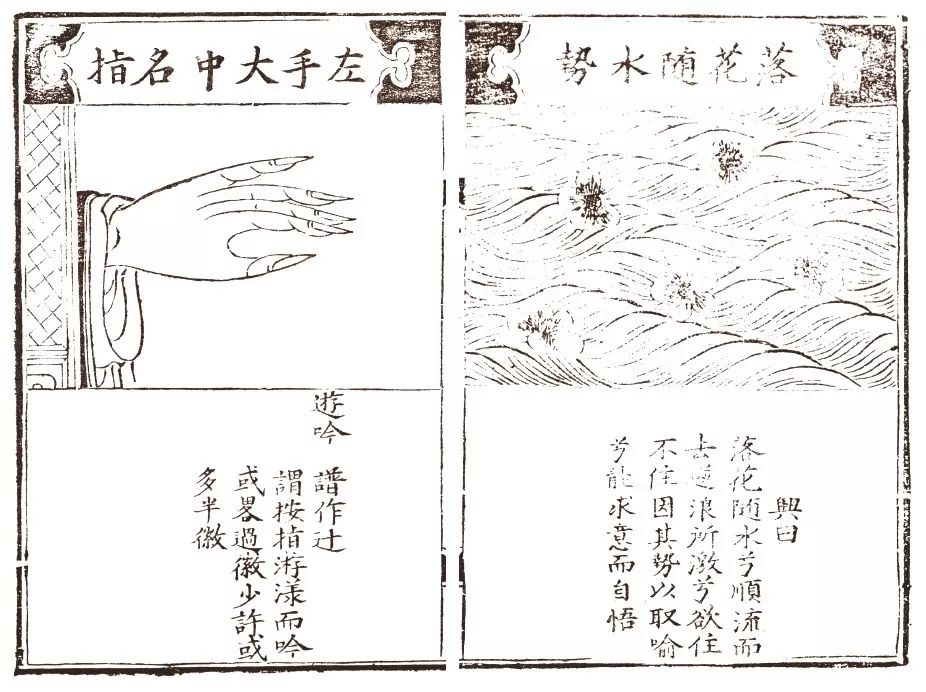 落花隨水勢
興曰
落花隨水兮順流而
去浪所激兮欲住
不住因其勢以取喻
兮能求意而自悟
左手大中名指
遊吟
譜作辻
謂按指游漾而吟
或畧過徽少許或
多半徽